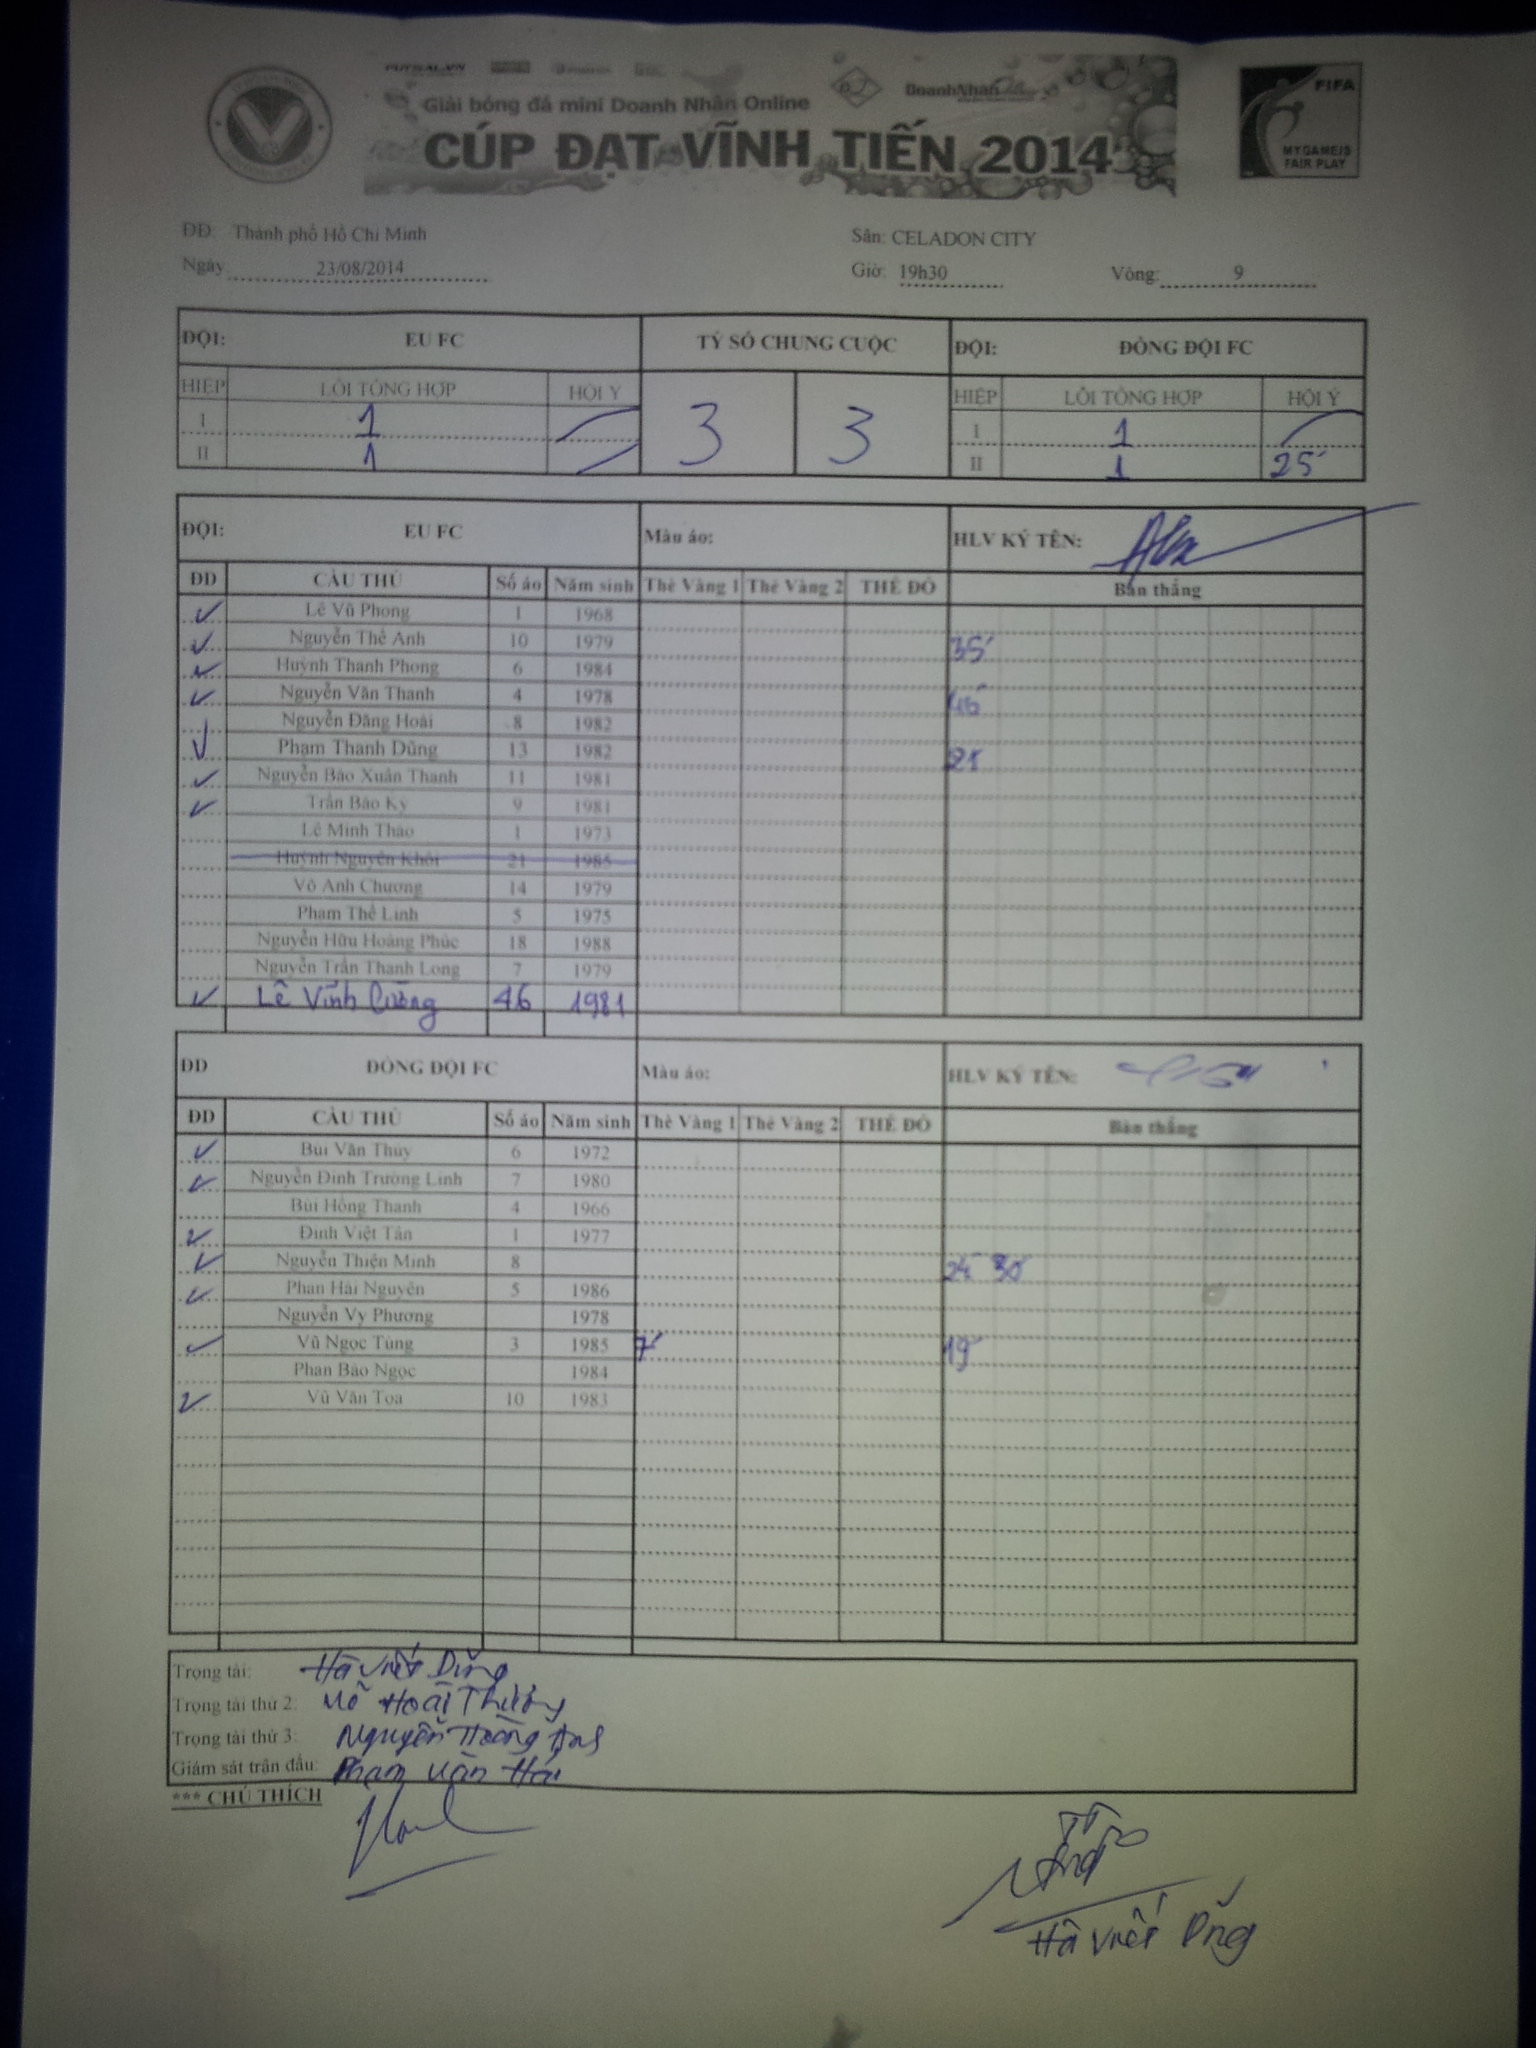 FUTSAL.VN
Giải bóng đá mini Doanh Nhân Online
DoanhNhân
CÚP ĐẠT VĨNH TIẾN 2014
FIFA
MY GAME IS
FAIR PLAY
ĐĐ: Thành phố Hồ Chí Minh Sân: CELADON CITY
Ngày 23/08/2014 Giờ: 19h30 Vòng: 9
ĐỘI: EU FC TỶ SỐ CHUNG CUỘC ĐỘI: ĐỒNG ĐỘI FC
HIỆP LỖI TỔNG HỢP HỘI Ý 3 3 HIỆP LỖI TỔNG HỢP HỘI Ý
I 1 I 1
II 1 II 1 25'
ĐỘI: EU FC Màu áo: HLV KÝ TÊN:
ĐD CẦU THỦ Số áo Năm sinh Thẻ Vàng 1 Thẻ Vàng 2 THẺ ĐỎ Bàn thắng
Lê Vũ Phong 1 1968
Nguyễn Thế Anh 10 1979 35'
Huỳnh Thanh Phong 6 1984
Nguyễn Văn Thanh 4 1978
Nguyễn Đăng Hoài 8 1982
Phạm Thanh Dũng 13 1982 21
Nguyễn Bảo Xuân Thanh 11 1981
Trần Bảo Kỳ 9 1981
Lê Minh Thảo 1 1973
Huỳnh Nguyên Khôi 21 1985
Võ Anh Chương 14 1979
Phạm Thế Linh 5 1975
Nguyễn Hữu Hoàng Phúc 18 1988
Nguyễn Trần Thanh Long 7 1979
Lê Vĩnh Cường 46 1981
ĐD ĐỒNG ĐỘI FC Màu áo: HLV KÝ TÊN:
ĐD CẦU THỦ Số áo Năm sinh Thẻ Vàng 1 Thẻ Vàng 2 THẺ ĐỎ Bàn thắng
Bùi Văn Thuy 6 1972
Nguyễn Đình Trường Linh 7 1980
Bùi Hồng Thanh 4 1966
Đinh Việt Tân 1 1977
Nguyễn Thiện Minh 8 24'
Phan Hải Nguyên 5 1986
Nguyễn Vy Phương 1978
Vũ Ngọc Tùng 3 1985 7' 19'
Phan Bảo Ngọc 1984
Vũ Văn Tọa 10 1983
Trọng tài: Hà Viết Dũng
Trọng tài thứ 2: Hoài Thương
Trọng tài thứ 3: Nguyễn Hoàng Anh
Giám sát trận đấu: Phạm Văn Hải
*** CHÚ THÍCH
Hà Viết Dũng